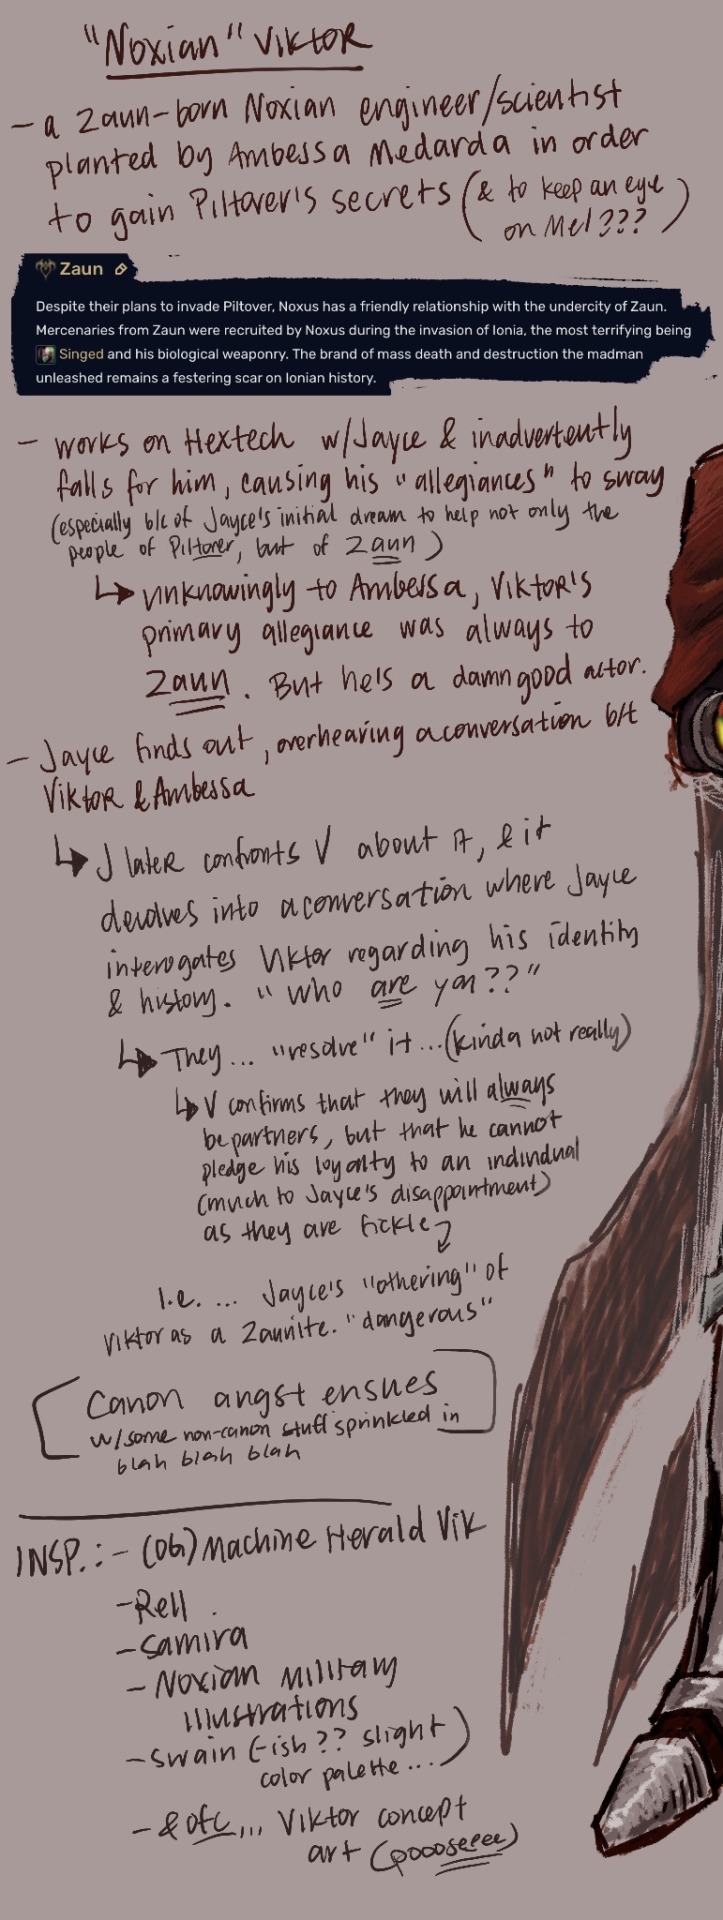 "Noxian" Viktor
- a Zaun-born Noxian engineer/scientist
planted by Ambessa Medarda in order
to gain Piltover's secrets (& to keep an eye
on Mel???)
Zaun
Despite their plans to invade Piltover, Noxus has a friendly relationship with the undercity of Zaun.
Mercenaries from Zaun were recruited by Noxus during the invasion of Ionia, the most terrifying being
Singed and his biological weaponry. The brand of mass death and destruction the madman
unleashed remains a festering scar on Ionian history.
- works on Hextech w/Jayce & inadvertently
falls for him, causing his "allegiances" to sway
(especially b/c of Jayce's initial dream to help not only the
people of Piltover, but of Zaun)
↳ unknowingly to Ambessa, Viktor's
primary allegiance was always to
Zaun. But he's a damn good actor.
- Jayce finds out, overhearing a conversation b/t
Viktor & Ambessa
↳ J later confronts V about it, & it
devolves into a conversation where Jayce
interogates Viktor regarding his identity
& history. "Who are you??"
↳ They... "resolve" it... (kinda not really)
↳ V confirms that they will always
be partners, but that he cannot
pledge his loyalty to an individual
(much to Jayce's disappointment)
as they are fickle
I.e. ... Jayce's "othering" of
Viktor as a Zaunite. "dangerous"
[Canon angst ensues
w/some non-canon stuff sprinkled in
blah blah blah]
INSP.: - (OG) Machine Herald Vik
- Rell
- Samira
- Noxian Military
Illustrations
- Swain (-ish?? slight
color palette...)
- & ofc... Viktor concept
art (poooseeee)